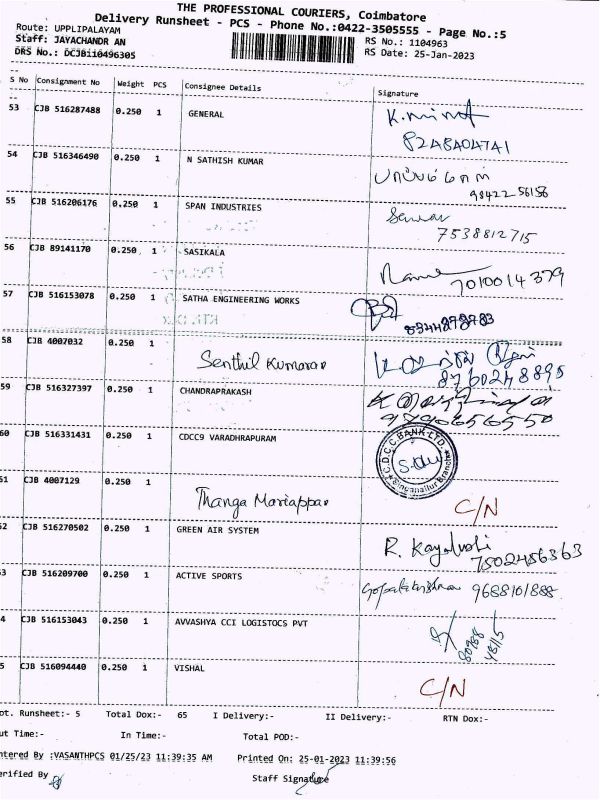 THE PROFESSIONAL COURIERS, Coimbatore
Delivery Runsheet - PCS - Phone No.:0422-3505555 - Page No.:5
Route: UPPLIPALAYAM
Staff: JAYACHANDR AN
DRS No.: DCJB110496305
RS No.: 1104963
RS Date: 25-Jan-2023
S No Consignment No Weight PCS Consignee Details Signature
53 CJB 516287488 0.250 1 GENERAL
8248404741
54 CJB 516346490 0.250 1 N SATHISH KUMAR
98422 56156
55 CJB 516206176 0.250 1 SPAN INDUSTRIES
7538812715
56 CJB 89141170 0.250 1 SASIKALA
7010014379
57 CJB 516153078 0.250 1 SATHA ENGINEERING WORKS
58 CJB 4007032 0.250 1 Senthil Kumaran
8760248895
59 CJB 516327397 0.250 1 CHANDRAPRAKASH
9790656550
60 CJB 516331431 0.250 1 CDCC9 VARADHRAPURAM
C.D.C.C BANK LTD.
Singanallur Branch
51 CJB 4007129 0.250 1 Thanga Mariappan C/N
52 CJB 516270502 0.250 1 GREEN AIR SYSTEM R. Kayalvoli
7502456363
3 CJB 516209700 0.250 1 ACTIVE SPORTS Gopalakrishnan 9688101888
4 CJB 516153043 0.250 1 AVVASHYA CCI LOGISTOCS PVT
80988
48115
5 CJB 516094440 0.250 1 VISHAL C/N
ot. Runsheet:- 5 Total Dox:- 65 I Delivery:- II Delivery:- RTN Dox:-
ut Time:- In Time:- Total POD:-
ntered By :VASANTHPCS 01/25/23 11:39:35 AM Printed On: 25-01-2023 11:39:56
erified By Staff Signature